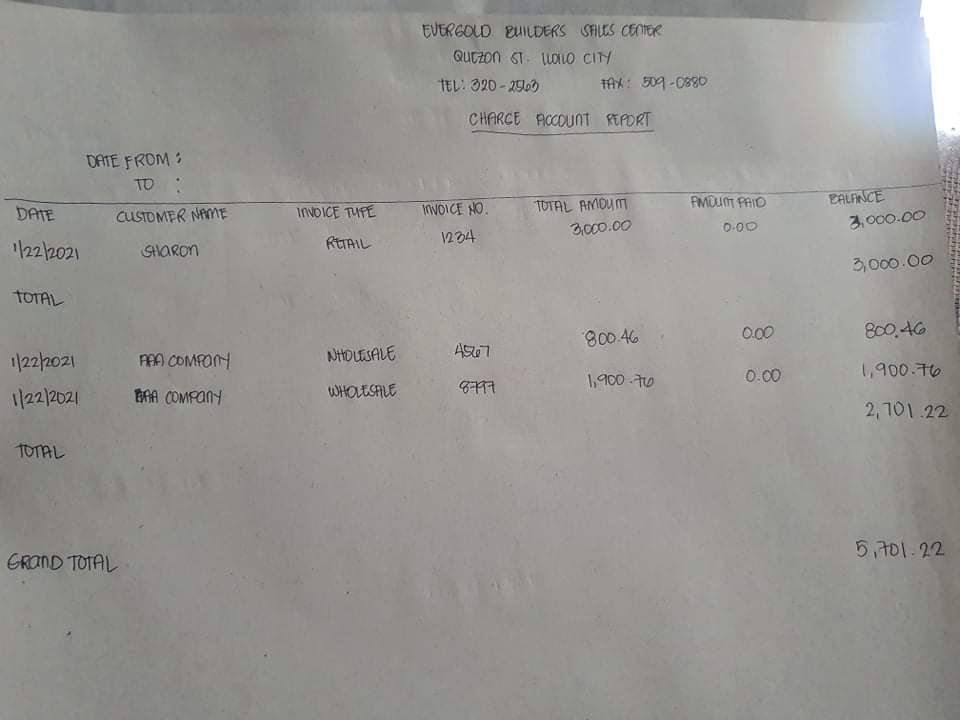 EVERGOLD BUILDERS SALES CENTER
QUEZON ST. ILOILO CITY
TEL: 320-2563 FAX: 509-0880
CHARGE ACCOUNT REPORT
DATE FROM :
TO :
DATE CUSTOMER NAME INVOICE TYPE INVOICE NO. TOTAL AMOUNT AMOUNT PAID BALANCE
1/22/2021 SHARON RETAIL 1234 3,000.00 0.00 3,000.00
TOTAL 3,000.00
1/22/2021 AAA COMPANY WHOLESALE 4567 800.46 0.00 800.46
1/22/2021 AAA COMPANY WHOLESALE 8797 1,900.76 0.00 1,900.76
TOTAL 2,701.22
GRAND TOTAL 5,701.22